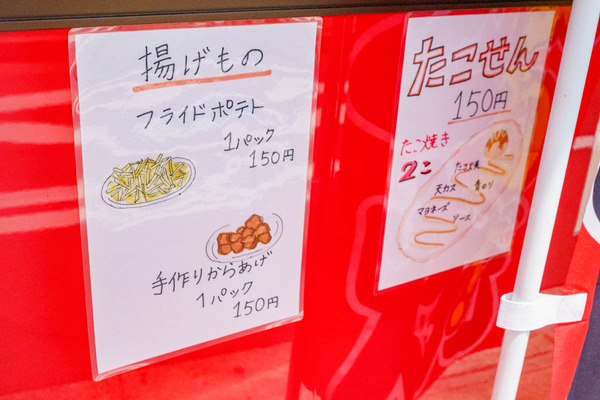 揚げもの
フライドポテト
1パック
150円
手作りからあげ
1パック
150円
たこせん
150円
たこ焼き
2こ
たこ焼
天カス 青のり
マヨネーズ
ソース